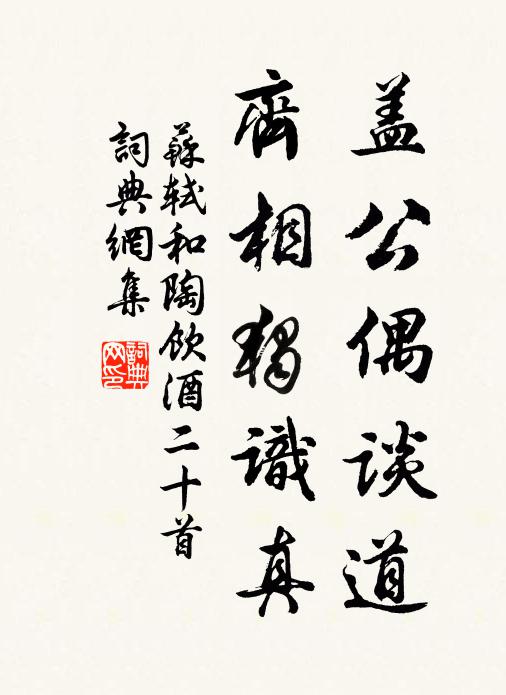 盖公偶谈道
齊相獨識真
蘇轼和陶飲酒二十首
詞典網集
詞典網印